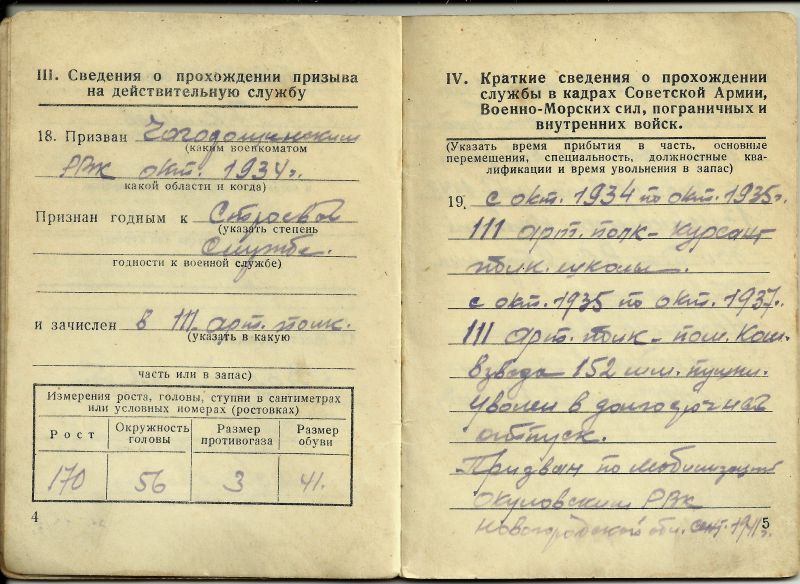 III. Сведения о прохождении призыва
на действительную службу
18. Призван Чагодощинским
(каким военкоматом
РВК окт. 1934 г.
какой области и когда)
Признан годным к Строевой
(указать степень
службе.
годности к военной службе)
и зачислен в 111. арт. полк.
(указать в какую
часть или в запас)
Измерения роста, головы, ступни в сантиметрах
или условных номерах (ростовках)
Рост Окружность головы Размер противогаза Размер обуви
170 56 3 41.
4
IV. Краткие сведения о прохождении
службы в кадрах Советской Армии,
Военно-Морских сил, пограничных и
внутренних войск.
(Указать время прибытия в часть, основные
перемещения, специальность, должностные ква-
лификации и время увольнения в запас)
19. с окт. 1934 по окт. 1935 г.
111 арт. полк - курсант
полк. школы.
с окт. 1935 по окт. 1937 г.
111 арт. полк - пом. ком.
взвода 152 мм. пушки.
Уволен в долгосрочный
отпуск.
Призван по мобилизации
Окуловским РВК
Новогородской обл. сент. 1941 г.
5